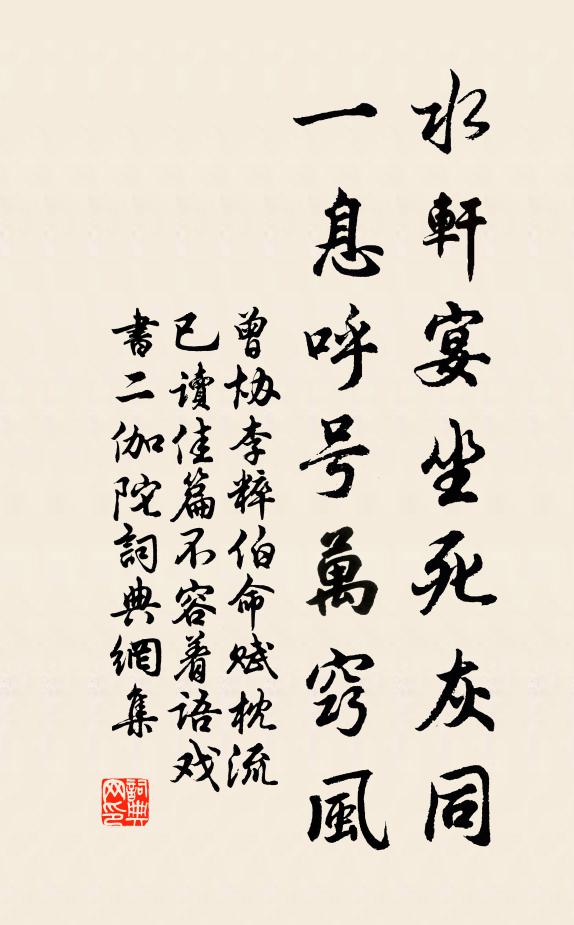 水軒宴坐死灰同
一息呼号萬竅風
曾协李粹伯命赋枕流
已讀佳篇不容着语戏
書二伽陀詞典網集
詞典网印